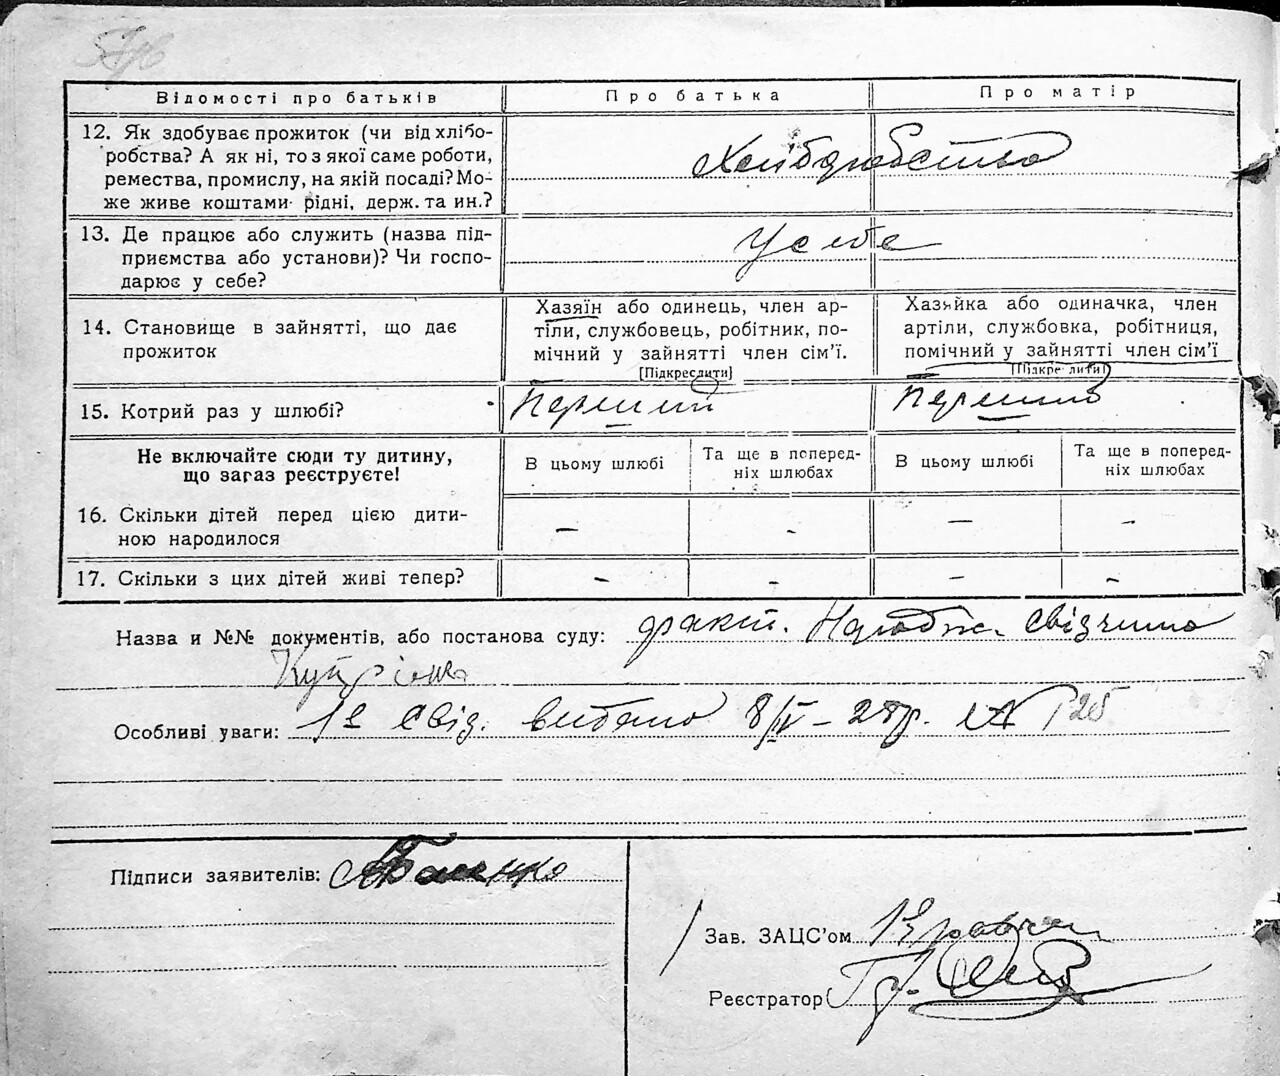 Відомості про батьків
Про батька
Про матір
12. Як здобуває прожиток (чи від хлібо-
робства? А як ні, то з якої саме роботи,
ремества, промислу, на якій посаді? Мо-
же живе коштами рідні, держ. та ин.?
Хліборобство
13. Де працює або служить (назва під-
приємства або установи)? Чи госпо-
дарює у себе?
У себе
14. Становище в зайнятті, що дає
прожиток
Хазяїн або одинець, член ар-
тіли, службовець, робітник, по-
мічний у зайнятті член сім'ї.
[Підкреслити]
Хазяйка або одиначка, член
артіли, службовка, робітниця,
помічний у зайнятті член сім'ї
[Підкреслити]
15. Котрий раз у шлюбі?
Перший
Перший
Не включайте сюди ту дитину,
що загаз реєструєте!
В цьому шлюбі
Та ще в поперед-
ніх шлюбах
В цьому шлюбі
Та ще в поперед-
ніх шлюбах
16. Скільки дітей перед цією дити-
ною народилося
– – – –
17. Скільки з цих дітей живі тепер?
– – – –
Назва и №№ документів, або постанова суду: факт. Народж. свідчило
Особливі уваги: свід. видано 8/IV – 28р. №
Підписи заявителів:
Зав. ЗАЦС'ом
Реєстратор